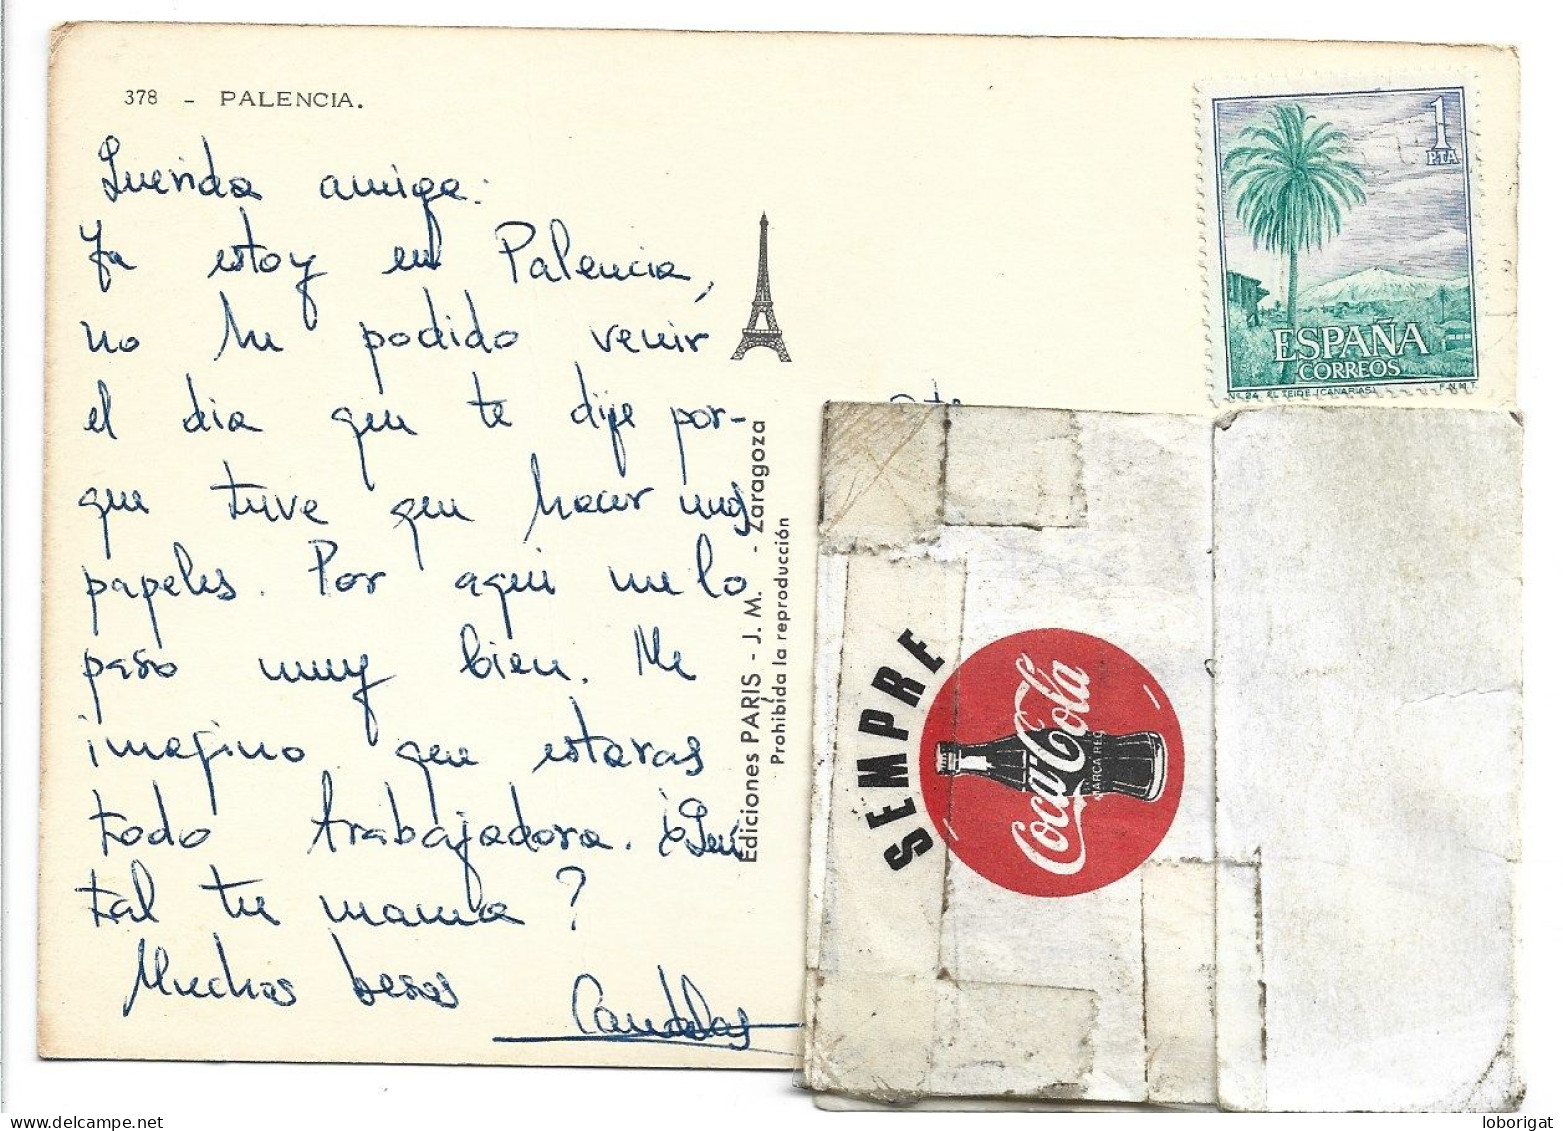 378 - PALENCIA.
Querida amiga:
Ya estoy en Palencia,
no he podido venir
el dia que te dije por-
que tuve que hacer unos
papeles. Por aqui me lo
paso muy bien. Me
imagino que estaras
todo trabajadora. ¿Qué
tal tu mama?
Muchos besos
Candelas
Ediciones PARIS - J. M. - Zaragoza
Prohibida la reproducción
1
PTA
ESPAÑA
CORREOS
Nº 24 EL TEIDE (CANARIAS) F.N.M.T.
SEMPRE
Coca-Cola
MARCA REG
loborigat